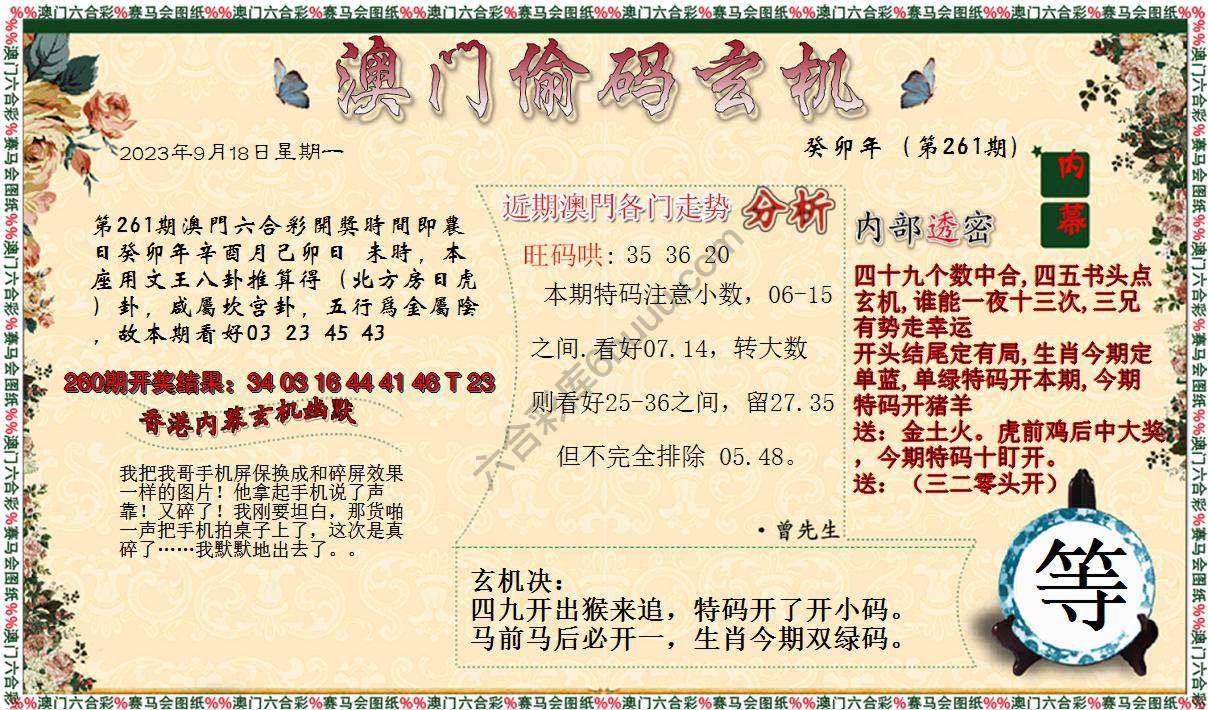 %%澳门六合彩%赛马会图纸%%澳门六合彩%赛马会图纸%%澳门六合彩%赛马会图纸%%澳门六合彩%赛马会图纸%%澳门六合彩%赛马会图纸%%澳门六合彩%赛马会图纸%%
澳门偷码玄机
2023年9月18日星期一
癸卯年（第261期）
内
幕
第261期澳門六合彩開獎時間即農
日癸卯年辛酉月己卯日 未時，本
座用文王八卦推算得（北方房日虎
）卦，咸屬坎宫卦，五行爲金屬陰
，故本期看好03 23 45 43
260期开奖结果：34 03 16 44 41 46 T 23
香港内幕玄机幽默
我把我哥手机屏保换成和碎屏效果
一样的图片！他拿起手机说了声
靠！又碎了！我刚要坦白，那货啪
一声把手机拍桌子上了，这次是真
碎了……我默默地出去了。。
近期澳門各门走势 分析
旺码哄: 35 36 20
本期特码注意小数，06-15
之间.看好07.14，转大数
则看好25-36之间，留27.35
但不完全排除 05.48。
·曾先生
内部透密
四十九个数中合,四五书头点
玄机,谁能一夜十三次,三兄
有势走幸运
开头结尾定有局,生肖今期定
单蓝,单绿特码开本期,今期
特码开猪羊
送：金土火。虎前鸡后中大奖
，今期特码十盯开。
送：（三二零头开）
玄机决：
四九开出猴来追，特码开了开小码。
马前马后必开一，生肖今期双绿码。
等
六合彩库6huuu.com
%%澳门六合彩%赛马会图纸%%澳门六合彩%赛马会图纸%%澳门六合彩%赛马会图纸%%澳门六合彩%赛马会图纸%%澳门六合彩%赛马会图纸%%澳门六合彩%赛马会图纸%%